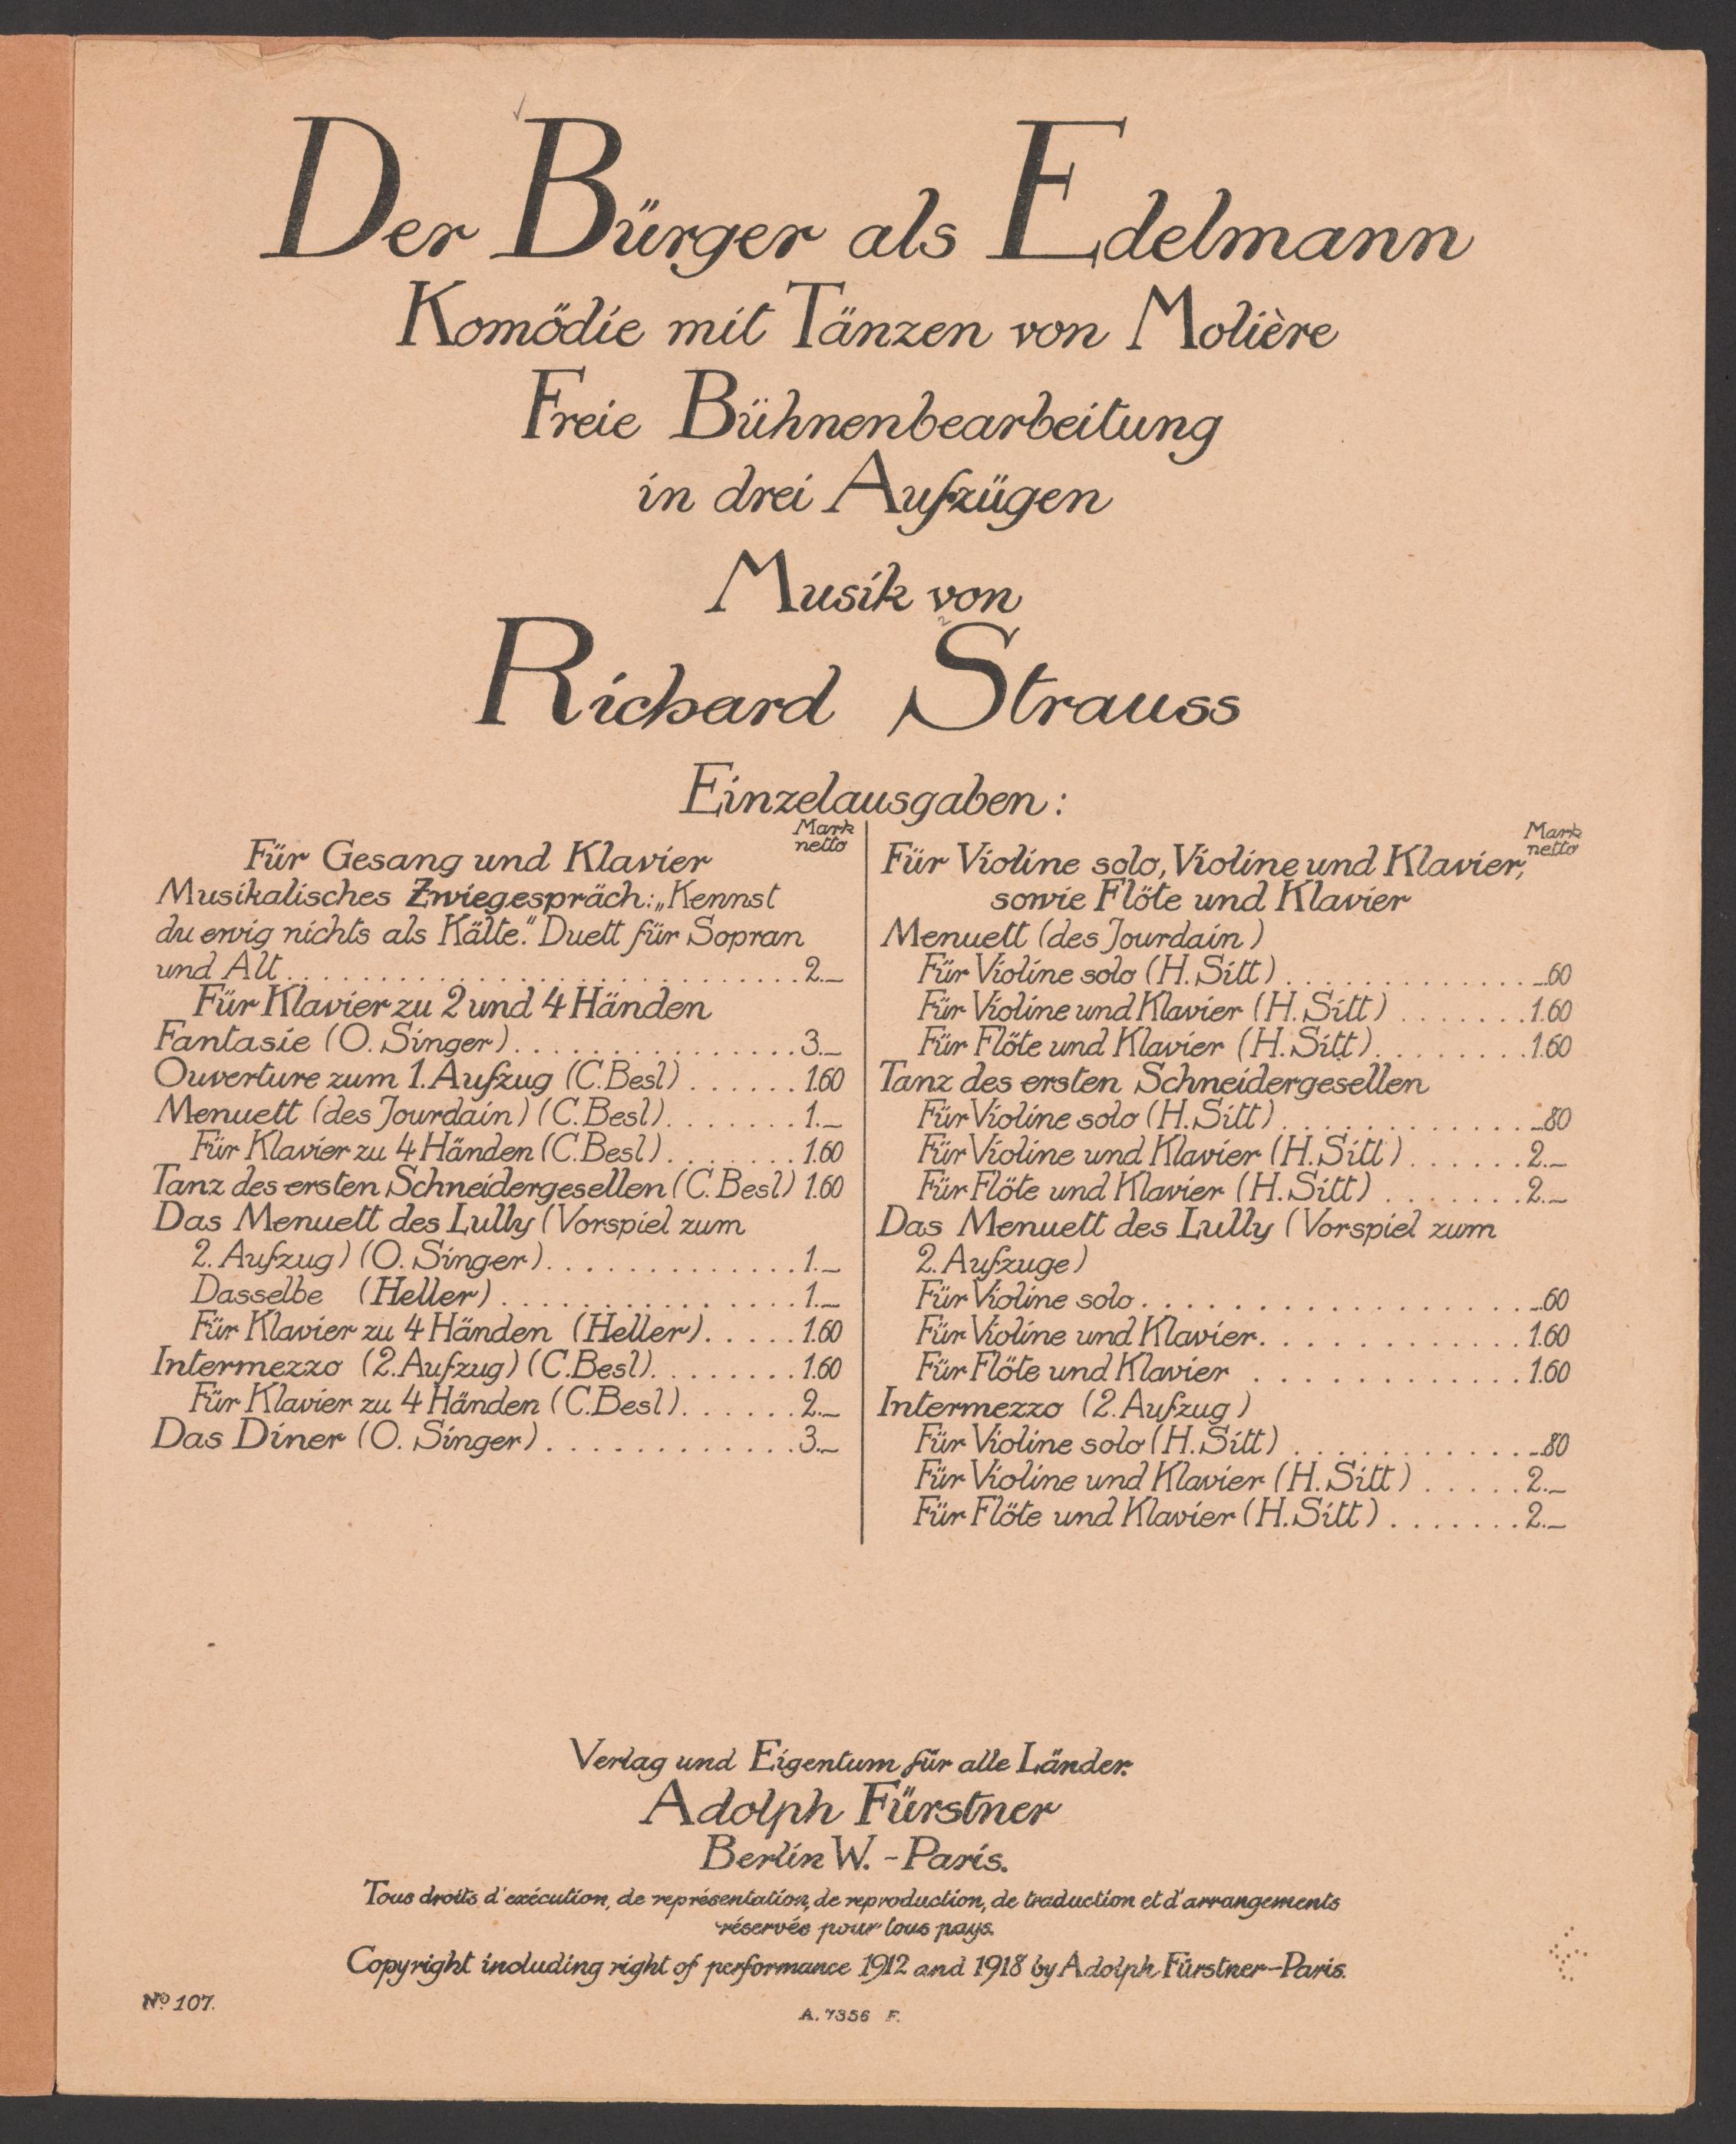 Der Bürger als Edelmann
Komödie mit Tänzen von Molière
Freie Bühnenbearbeitung
in drei Aufzügen
Musik von
Richard Strauss
Einzelausgaben:
Mark
netto
Für Gesang und Klavier
Musikalisches Zwiegespräch: „Kennst
du ewig nichts als Kälte." Duett für Sopran
und Alt . . . . . . . . . . 2.—
Für Klavier zu 2 und 4 Händen
Fantasie (O. Singer) . . . . . . . . . . 3.—
Ouverture zum 1. Aufzug (C. Besl) . . . . . . 1.60
Menuett (des Jourdain) (C. Besl) . . . . . . . 1.—
Für Klavier zu 4 Händen (C. Besl) . . . . . . . 1.60
Tanz des ersten Schneidergesellen (C. Besl) 1.60
Das Menuett des Lully (Vorspiel zum
2. Aufzug) (O. Singer) . . . . . . . . . . 1.—
Dasselbe (Heller) . . . . . . . . . . 1.—
Für Klavier zu 4 Händen (Heller) . . . . . 1.60
Intermezzo (2. Aufzug) (C. Besl) . . . . . . . . 1.60
Für Klavier zu 4 Händen (C. Besl) . . . . . . 2.—
Das Diner (O. Singer) . . . . . . . . . . 3.—
Mark
netto
Für Violine solo, Violine und Klavier,
sowie Flöte und Klavier
Menuett (des Jourdain)
Für Violine solo (H. Sitt) . . . . . . . . . . —.60
Für Violine und Klavier (H. Sitt) . . . . . . . 1.60
Für Flöte und Klavier (H. Sitt) . . . . . . . . 1.60
Tanz des ersten Schneidergesellen
Für Violine solo (H. Sitt) . . . . . . . . . . —.80
Für Violine und Klavier (H. Sitt) . . . . . . 2.—
Für Flöte und Klavier (H. Sitt) . . . . . . . 2.—
Das Menuett des Lully (Vorspiel zum
2. Aufzuge)
Für Violine solo . . . . . . . . . . —.60
Für Violine und Klavier . . . . . . . . . . 1.60
Für Flöte und Klavier . . . . . . . . . . 1.60
Intermezzo (2. Aufzug)
Für Violine solo (H. Sitt) . . . . . . . . . . —.80
Für Violine und Klavier (H. Sitt) . . . . . 2.—
Für Flöte und Klavier (H. Sitt) . . . . . . . 2.—
Verlag und Eigentum für alle Länder.
Adolph Fürstner
Berlin W. - Paris.
Tous droits d'exécution, de représentation, de reproduction, de traduction et d'arrangements
réservés pour tous pays.
Copyright including right of performance 1912 and 1918 by Adolph Fürstner-Paris.
No. 107.
A. 7356 F.